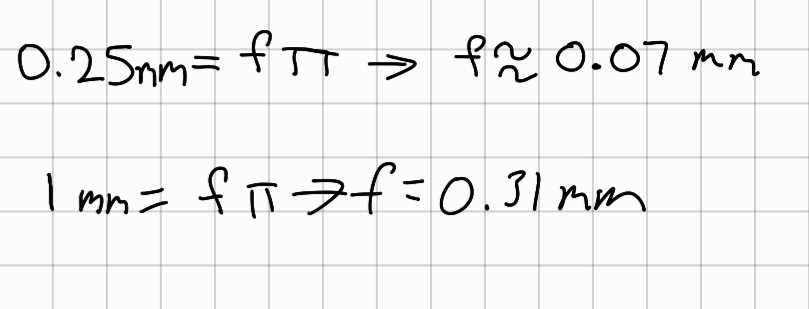 0.25mm = fπ → f ≈ 0.07 mm
1 mm = fπ → f = 0.31 mm